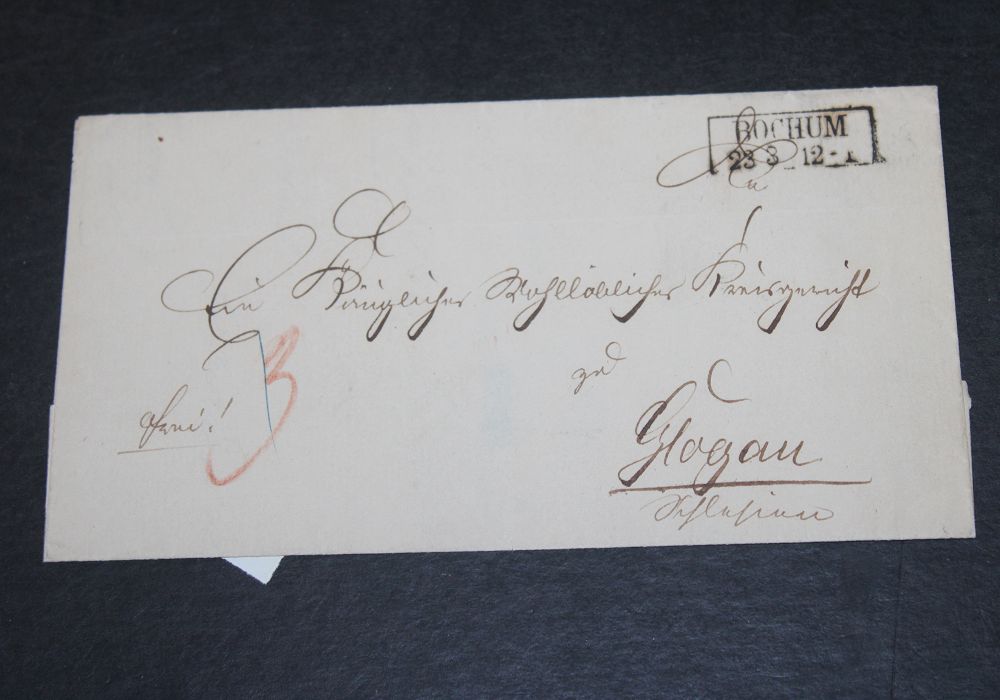 BOCHUM
23 3 12-1
An
Ein Königliches Wohllöbliches Kreisgericht
zu
frei!
3
Glogau
Schlesien